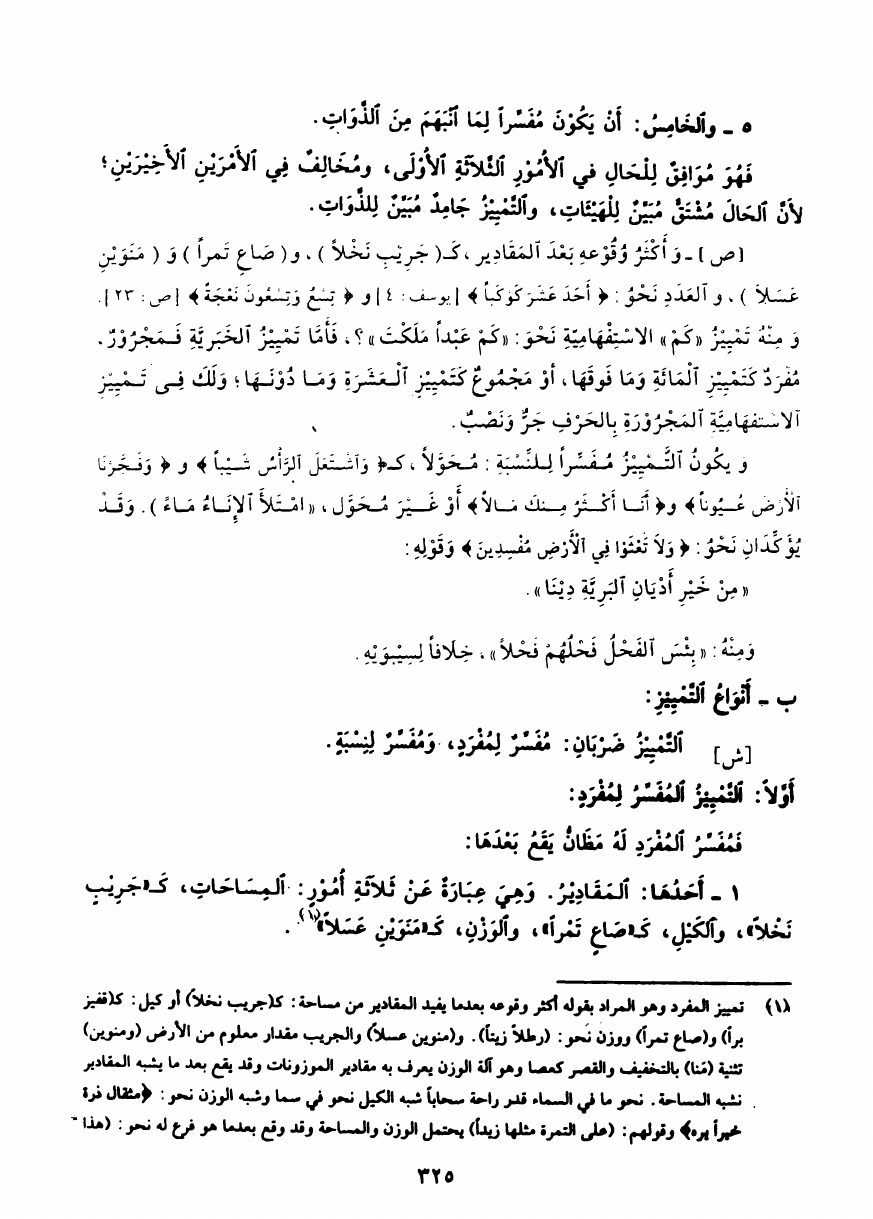 ٥ ـ وٱلخَامِسُ: أَنْ يَكُوْنَ مُفَسِّراً لِمَا ٱنْبَهَمَ مِنَ ٱلذَّوَاتِ.
فَهُوَ مُوَافِقٌ لِلْحَالِ في ٱلأُمُوْرِ ٱلثَّلَاثَةِ ٱلأُوْلَى، ومُخَالِفٌ فِي ٱلأَمْرَيْنِ ٱلأَخِيْرَيْنِ؛
لأَنَّ ٱلحَالَ مُشْتَقٌّ مُبَيِّنٌ لِلْهَيْئَاتِ، وٱلتَّمْيِيْزُ جَامِدٌ مُبَيِّنٌ لِلذَّوَاتِ.
[ص] ـ وَ أَكْثَرُ وُقُوْعِهِ بَعْدَ ٱلمَقَادِيرِ، كـ( جَرِيْبٍ نَخْلاً )، و( صَاعٍ تَمراً ) وَ ( مَنَوَيْنِ
عَسَلاً )، و ٱلعَدَدِ نَحْوُ: ﴿ أَحَدَ عَشَرَ كَوْكَباً ﴾ [يوسف: ٤] و ﴿ تِسْعٌ وَتِسْعُونَ نَعْجَةً ﴾ [ص: ٢٣].
وَ مِنْهُ تَمْيِيْزُ «كَمْ» الاسْتِفْهَامِيَّةِ نَحْوَ: «كَمْ عَبْداً مَلَكْتَ»؟، فَأَمَّا تَمْيِيْزُ ٱلخَبَرِيَّةِ فَـمَجْرُوْرٌ.
مُفْرَدٌ كَتَمْيِيْزِ ٱلْمَائَةِ وَمَا فَوقَهَا، أوْ مَجْمُوعٌ كَتَمْيِيْزِ ٱلْـعَشَرَةِ وَمَـا دُوْنَـهَا؛ وَلَكَ فِـى تَـمْيِيْزِ
ٱلاسْتفهَامِيَّةِ ٱلمَجْرُوْرَةِ بِالحَرْفِ جَرٌّ وَنَصْبٌ.
وَ يكُونُ ٱلتَّـمْيِيْزُ مُـفَسِّراً لِـلنِّسْبَةِ: مُـحَوَّلاً، كـ﴿ وَٱشْـتَعَلَ ٱلرَّأْسُ شَـيْباً ﴾ و ﴿ وَفَـجَّرْنَا
ٱلأَرْضَ عُـيُوناً ﴾ و﴿ أَنَـا أَكْـثَرُ مِـنكَ مَـالاً ﴾ أَوْ غَـيْرَ مُـحَوَّلٍ، «امْـتَلأَ ٱلإِنَـاءُ مَـاءً ). وَقَـدْ
يُؤَكِّدَانِ نَحْوُ: ﴿ وَلاَ تَعْثَوْا فِي ٱلأَرْضِ مُفْسِدِينَ ﴾ وَقَوْلِهِ:
«مِنْ خَيْرِ أَدْيَانِ ٱلبَرِيَّةِ دِيْنَا».
وَمِنْهُ: «بِئْسَ ٱلفَحْلُ فَحْلُهُمْ فَحْلاً»، خِلَافاً لِسِيْبَوَيْهِ.
ب ـ أَنْوَاعُ ٱلتَّمْيِيْزِ:
[ش] ٱلتَّمْيِيْزُ ضَرْبَانِ: مُفَسِّرٌ لِمُفْرَدٍ، وَمُفَسِّرٌ لِنِسْبَةٍ.
أَوَّلاً: ٱلتَّمْيِيْزُ ٱلمُفَسِّرُ لِمُفْرَدٍ:
فَمُفَسِّرُ ٱلمُفْرَدِ لَهُ مَظَانُّ يَقَعُ بَعْدَهَا:
١ ـ أَحَدُهَا: ٱلمَقَادِيْرُ. وَهِيَ عِبَارَةٌ عَنْ ثَلَاثَةِ أُمُوْرٍ: ٱلمِسَاحَاتِ، كَـ«جَرِيْبٍ
نَخْلاً»، وٱلكَيْلِ، كَـ«صَاعٍ تَمْراً»، وٱلوَزْنِ، كَـ«مَنَوَيْنِ عَسَلاً»(١).
(١) تمييز المفرد وهو المراد بقوله أكثر وقوعه بعدما يفيد المقادير من مساحة: كـ(جريب نخلاً) أو كيل: كـ(قفيز
براً) و(صاع تمراً) ووزن نحو: (رطلاً زيتاً). و(منوين عسلاً) والجريب مقدار معلوم من الأرض (ومنوين)
تثنية (مَنا) بالتخفيف والقصر كعصا وهو آلة الوزن يعرف به مقادير الموزونات وقد يقع بعد ما يشبه المقادير
نشبه المساحة. نحو ما في السماء قدر راحة سحاباً شبه الكيل نحو في سما وشبه الوزن نحو: ﴿مثقال ذرة
خيراً يره﴾ وقولهم: (على التمرة مثلها زيداً) يحتمل الوزن والمساحة وقد وقع بعدما هو فرع له نحو: (هذا =
٣٢٥